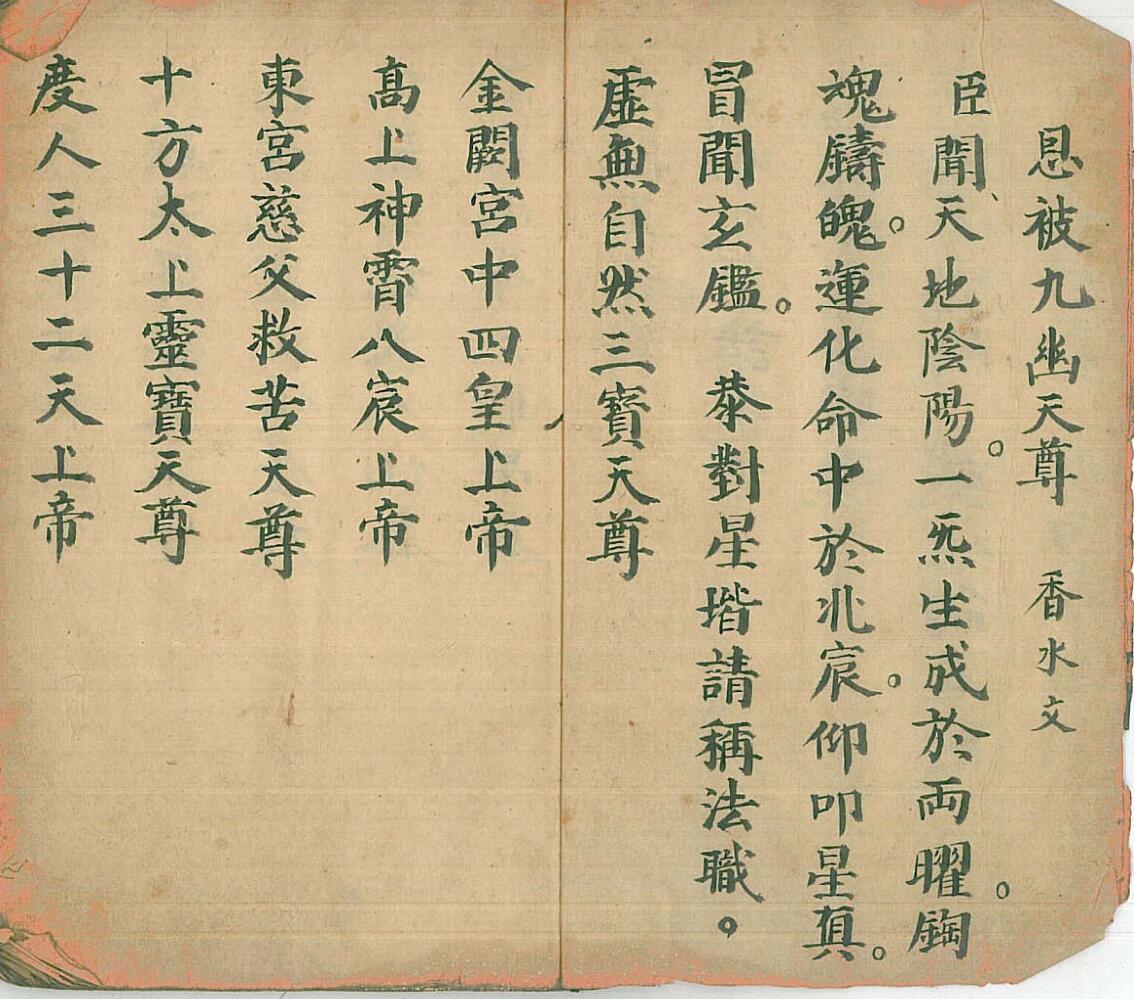 恩被九幽天尊　香水文
臣聞、天地陰陽。一炁生成於両曜。鋾
魂鑄魄。運化命中於兆宸。仰叩星真。
冒聞玄鑑。　恭對星堦請稱法職。
虛無自然三寳天尊
金闕宮中四皇上帝
髙上神霄八宸上帝
東宮慈父救苦天尊
十方太上靈寶天尊
度人三十二天上帝